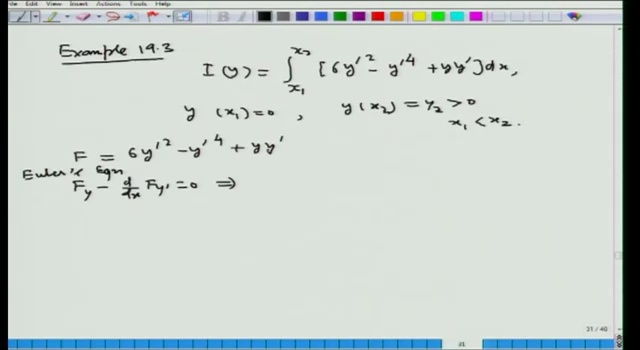 File Edit View Insert Actions Tools Help
Example 19.3
I(y) = ∫_{x₁}^{x₂} [6y'² - y'⁴ + yy']dx,
y(x₁)=0, y(x₂) = y₂ > 0
x₁ < x₂.
F = 6y'² - y'⁴ + yy'
Euler's Eqn
F_y - d/dx F_y' = 0 ⇒
31 / 40
31